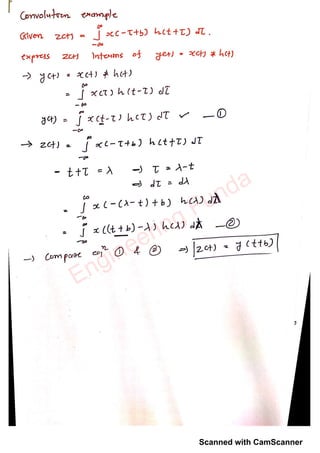 Convolution example
Given z(t) = ∫_{-∞}^{∞} x(-τ+b) h(t+τ) dτ.
express z(t) interms of y(t) = x(t) * h(t)
→ y(t) = x(t) * h(t)
= ∫_{-∞}^{∞} x(τ) h(t-τ) dτ
y(t) = ∫_{-∞}^{∞} x(t-τ) h(τ) dτ ✓ —①
→ z(t) = ∫_{-∞}^{∞} x(-τ+b) h(t+τ) dτ
- t+τ = λ → τ = λ-t
⇒ dτ = dλ
= ∫_{-∞}^{∞} x(-(λ-t)+b) h(λ) dλ
= ∫_{-∞}^{∞} x((t+b)-λ) h(λ) dλ —②
→ Compare eqⁿ ① & ② ⇒ z(t) = y(t+b)
Engineering Funda
Scanned with CamScanner